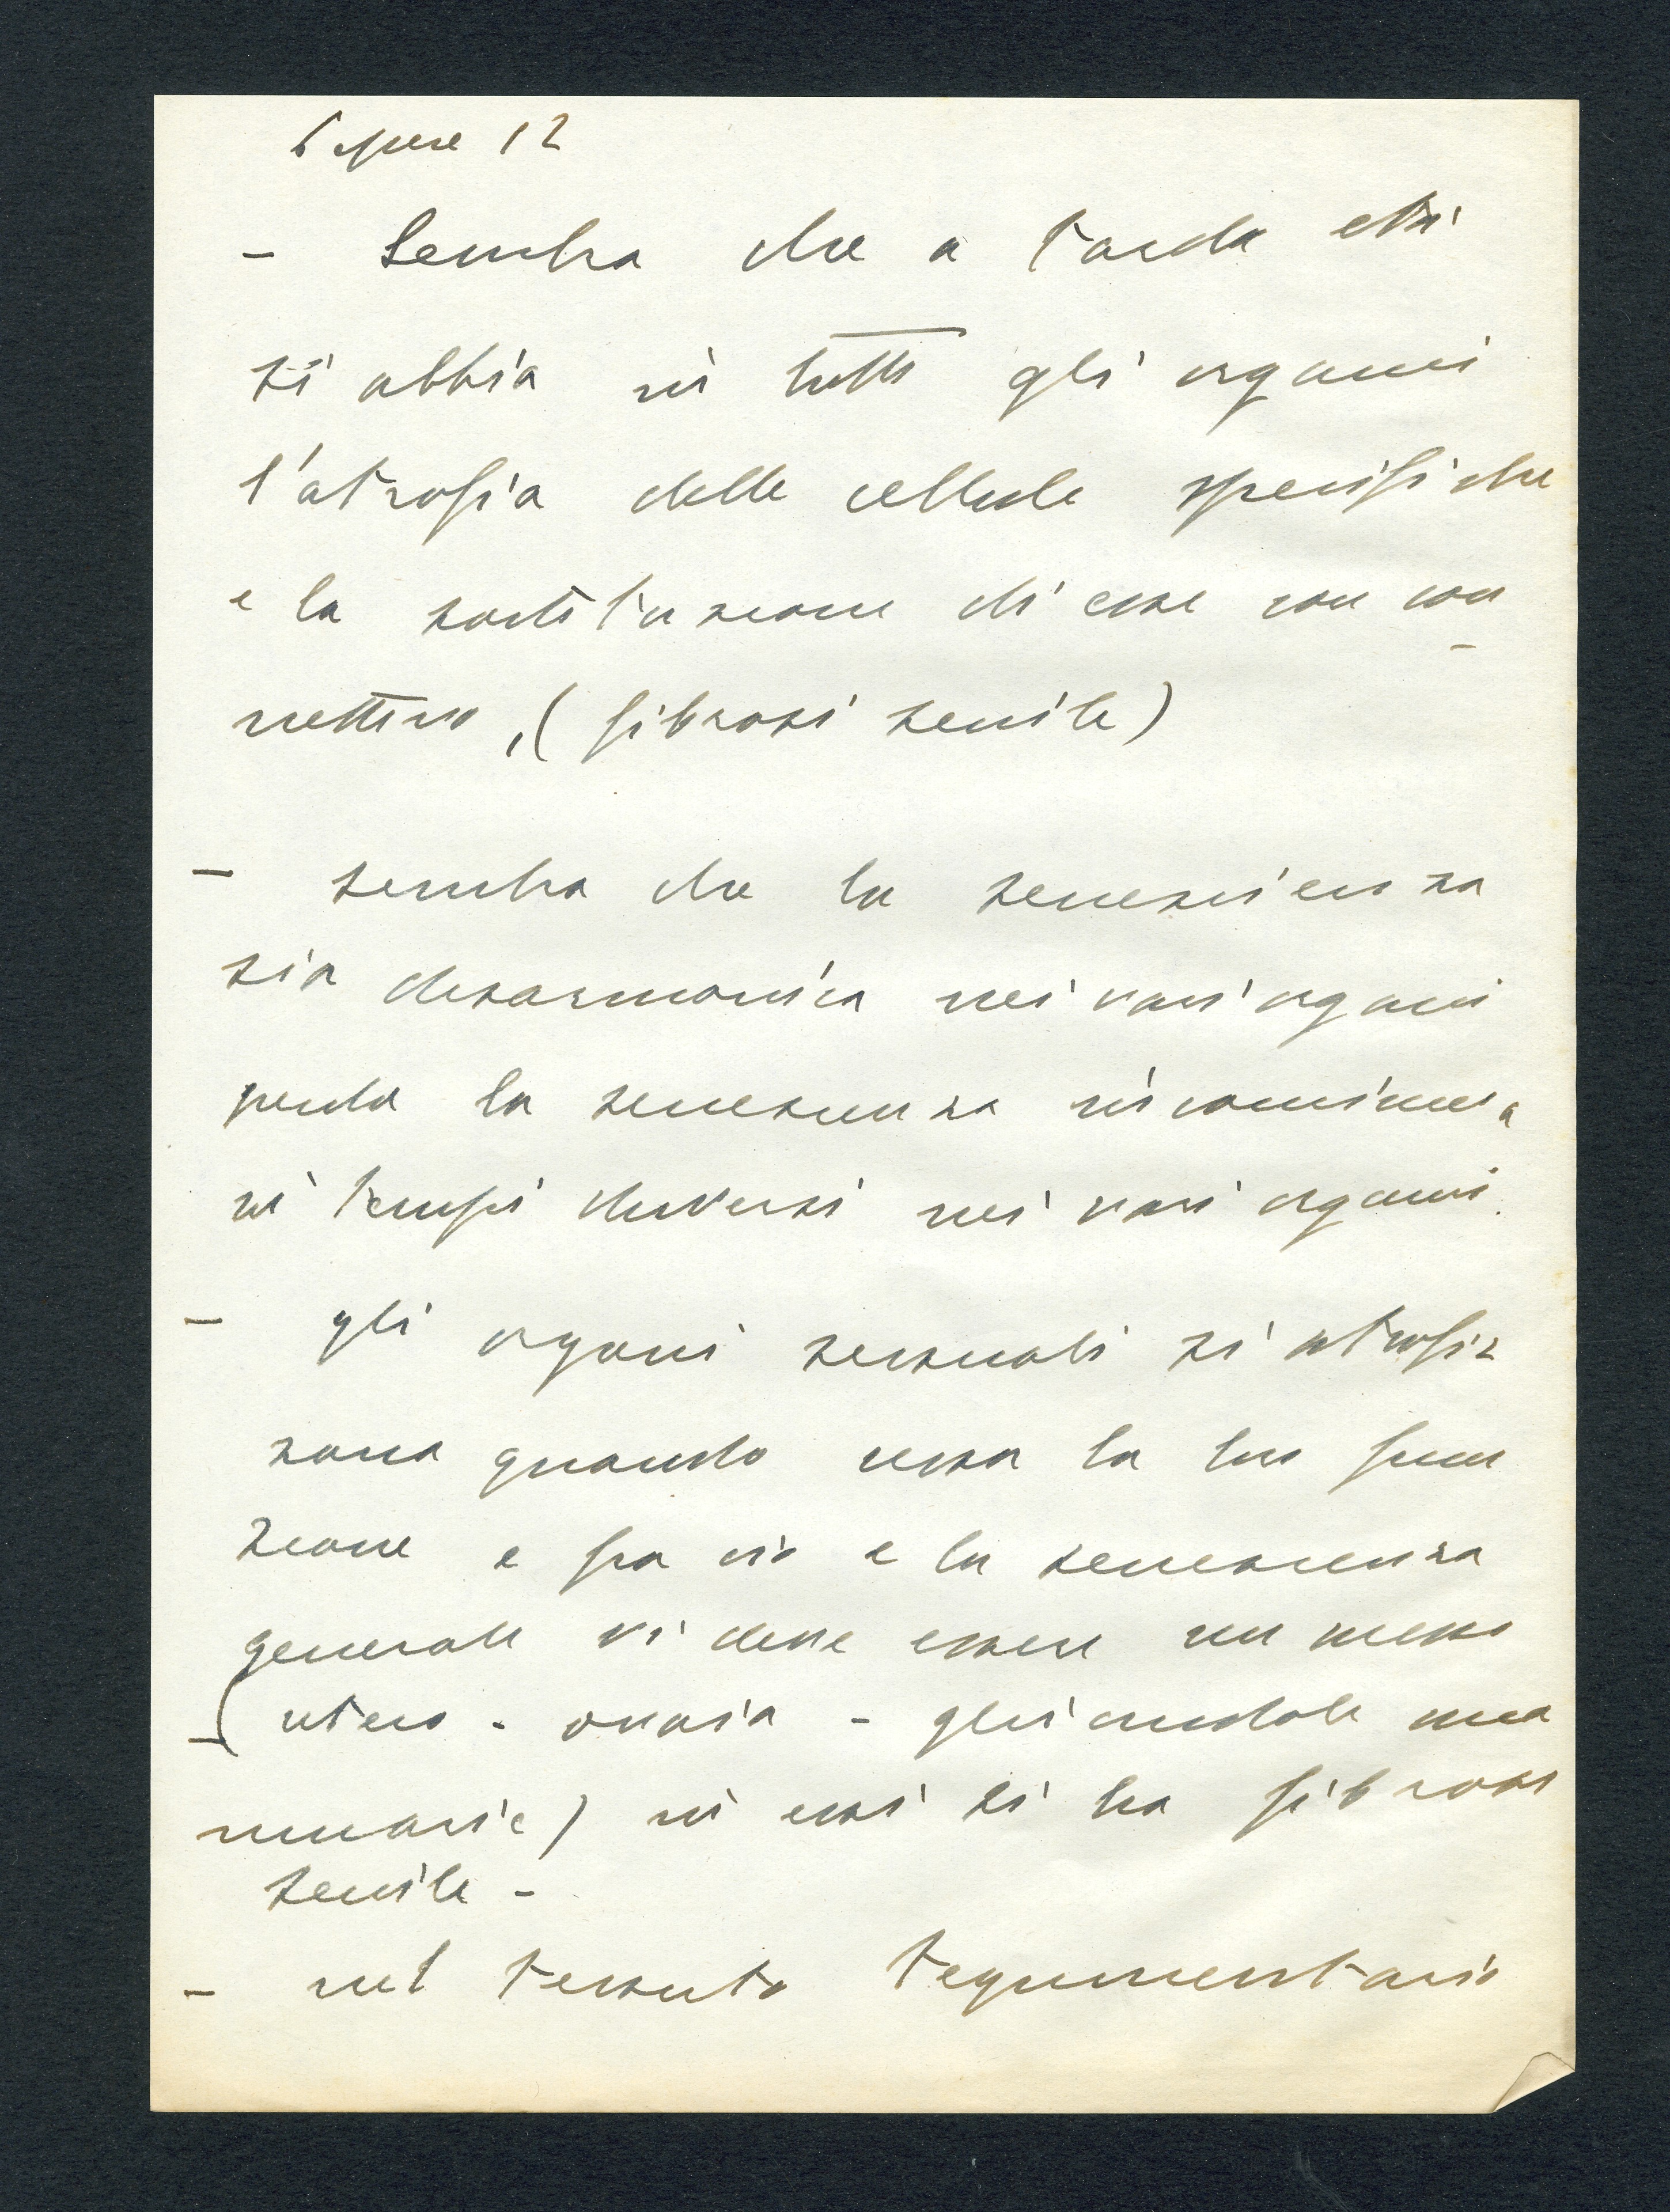 12
- Sembra che a tarda età
si abbia in tutti gli organi
l'atrofia delle cellule specifiche
e la sostituzione di esse con con
nettivo, (fibrosi senile)
- sembra che la senescienza
sia disarmonica nei vari organi
perché la senescenza incomincia
in tempi diversi nei vari organi.
- gli organi sessuali si atrofiz
zano quando cessa la loro fun
zione e fra ciò e la senescenza
generale vi deve essere un nesso
- (utero - ovaia - ghiandole ma
mmarie) in essi si ha fibrosi
senile -
- nel tessuto tegumentario